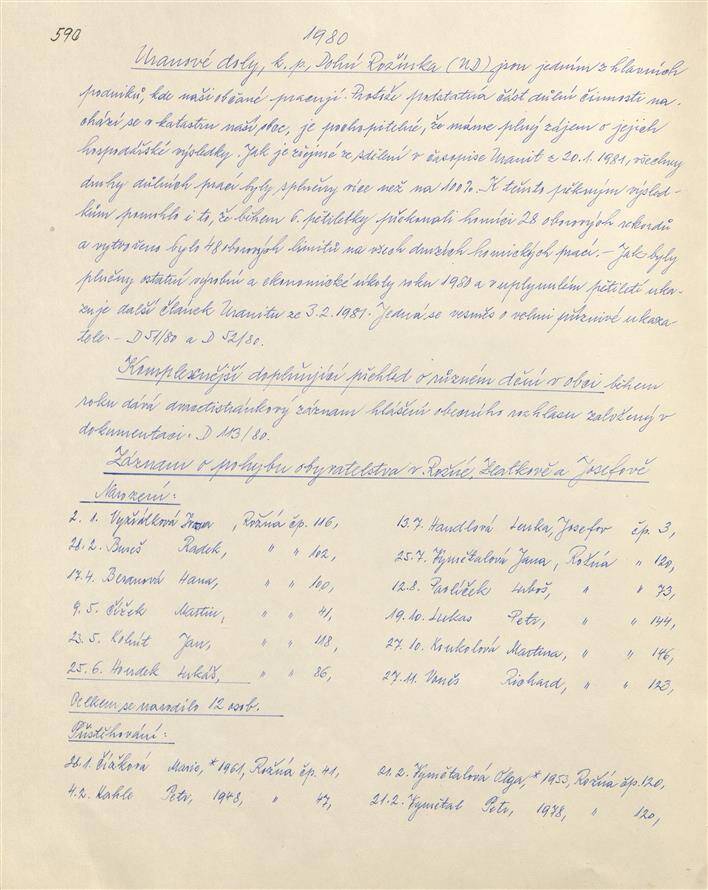 590
1980
Uranové doly, k. p., Dolní Rožínka (UD) jsou jedním z hlavních
podniků, kde naši občané pracují. Protože podstatná část důlní činnosti na-
chází se v katastru naší obce, je pochopitelné, že máme plný zájem o jejich
hospodářské výsledky. Jak je zřejmé ze sdělení v časopise Uranit z 20.1.1981, všechny
druhy důlních prací byly splněny více než na 100%. K těmto pěkným výsled-
kům pomohlo i to, že během 6. pětiletky překonali horníci 28 oborových rekordů
a vytvořeno bylo 48 oborových limitů na všech druzích hornických prací. - Jak byly
plněny ostatní výrobní a ekonomické úkoly roku 1980 a v uplynulém pětiletí uka-
zuje další článek Uranitu ze 3.2.1981. Jedná se vesměs o velmi příznivé ukaza-
tele. - D 51/80 a D 52/80.
Komplexnější doplňující přehled o různém dění v obci během
roku dává dvacetistránkový záznam hlášení obecního rozhlasu založený v
dokumentaci. D 113/80.
Záznam o pohybu obyvatelstva v Rožné, Zlatkově a Josefově
Narození:
2. 1. Vyžrálková Ivana, Rožná čp. 116,
28.2. Bureš Radek, " " 102,
17.4. Beranová Hana, " " 100,
9. 5. Čížek Martin, " " 41,
23. 5. Kohút Jan, " " 118,
25. 6. Houdek Lukáš, " " 86,
13.7. Handlová Lenka, Josefov čp. 3,
25.7. Vymětalová Jana, Rožná " 120,
12.8. Pavlíček Luboš, " " 73,
19.10. Lukas Petr, " " 144,
27. 10. Koukolová Martina, " " 146,
27.11. Voneš Richard, " " 123,
Celkem se narodilo 12 osob.
Přistěhování:
28.1. Čížková Marie, * 1961, Rožná čp. 41,
4.2. Kahle Petr, 1948, " 47,
21.2. Vymětalová Olga, * 1953, Rožná čp. 120,
21.2. Vymětal Petr, 1978, " 120,